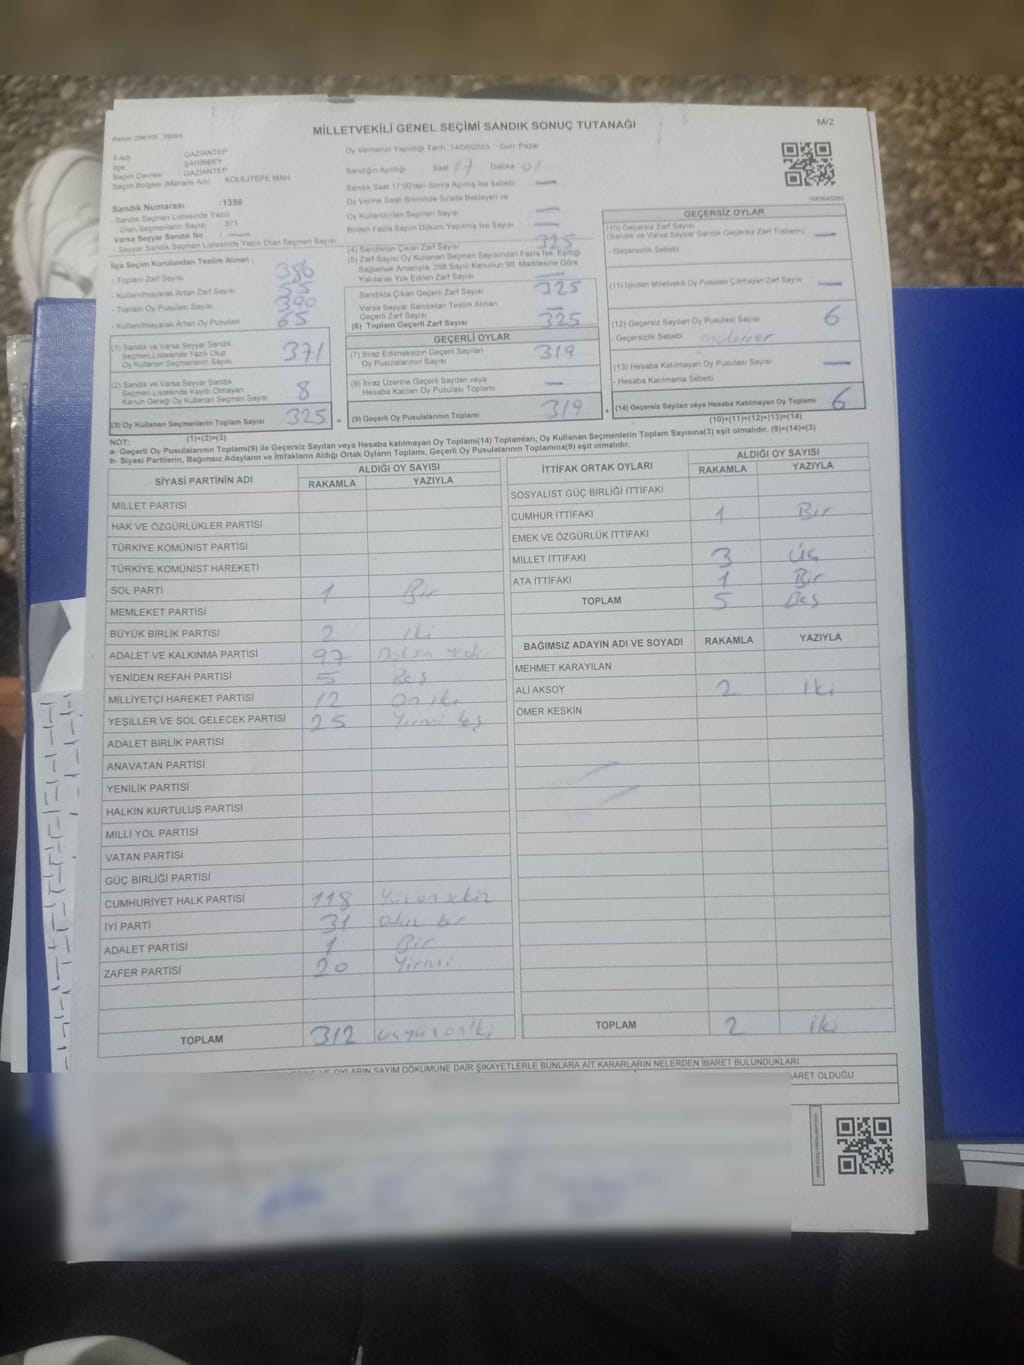 MİLLETVEKİLİ GENEL SEÇİMİ SANDIK SONUÇ TUTANAĞI
M/2
İl Adı GAZİANTEP
İlçe ŞAHİNBEY
Seçim Çevresi GAZİANTEP
Seçim Bölgesi (Mahalle Adı) KOLEJTEPE MAH.
Sandık Numarası :1386
- Sandık Seçmen Listesinde Yazılı
Olan Seçmenlerin Sayısı 371
Varsa Seyyar Sandık No : —
- Seyyar Sandık Seçmen Listesinde Yazılı Olan Seçmen Sayısı
İlçe Seçim Kurulundan Teslim Alınan :
- Toplam Zarf Sayısı 386
- Kullanılmayarak Artan Zarf Sayısı
- Toplam Oy Pusulası Sayısı 390
- Kullanılmayarak Artan Oy Pusulası 65
(1) Sandık ve Varsa Seyyar Sandık
Seçmen Listesinde Yazılı Olup
Oy Kullanan Seçmenlerin Sayısı 371
(2) Sandık ve Varsa Seyyar Sandık
Seçmen Listesinde Kayıtlı Olmayan
Kanun Gereği Oy Kullanan Seçmen Sayısı 8
(3) Oy Kullanan Seçmenlerin Toplam Sayısı 325
(1)+(2)=(3)
Oy Vermenin Yapıldığı Tarih :14/05/2023 Gün: Pazar
Sandığın Açıldığı Saat 17 Dakika 01
Sandık Saat 17:00'den Sonra Açılmış İse Sebebi —
Oy Verme Saati Bitiminde Sırada Bekleyen ve
Oy Kullandırılan Seçmen Sayısı —
Birden Fazla Sayım Döküm Yapılmış İse Sayısı —
(4) Sandıktan Çıkan Zarf Sayısı 325
(5) Zarf Sayısı Oy Kullanan Seçmen Sayısından Fazla İse, Eşitliği
Sağlamak Amacıyla, 298 Sayılı Kanunun 98. Maddesine Göre
Yakılarak Yok Edilen Zarf Sayısı —
Sandıkta Çıkan Geçerli Zarf Sayısı 325
Varsa Seyyar Sandıktan Teslim Alınan
Geçerli Zarf Sayısı —
(6) Toplam Geçerli Zarf Sayısı 325
GEÇERLİ OYLAR
(7) İtiraz Edilmeksizin Geçerli Sayılan
Oy Pusulalarının Sayısı 319
(8) İtiraz Üzerine Geçerli Sayılan veya
Hesaba Katılan Oy Pusulası Toplamı —
= (9) Geçerli Oy Pusulalarının Toplamı 319
GEÇERSİZ OYLAR
(10) Geçersiz Zarf Sayısı
(Sandık ve Varsa Seyyar Sandık Geçersiz Zarf Toplamı) —
- Geçersizlik Sebebi
(11) İçinden Milletvekili Oy Pusulası Çıkmayan Zarf Sayısı —
(12) Geçersiz Sayılan Oy Pusulası Sayısı 6
- Geçersizlik Sebebi
(13) Hesaba Katılmayan Oy Pusulası Sayısı —
- Hesaba Katılmama Sebebi
+ (14) Geçersiz Sayılan veya Hesaba Katılmayan Oy Toplamı 6
(10)+(11)+(12)+(13)=(14)
NOT:
a- Geçerli Oy Pusulalarının Toplamı(9) ile Geçersiz Sayılan veya Hesaba katılmayan Oy Toplamı(14) Toplamları, Oy Kullanan Seçmenlerin Toplam Sayısına(3) eşit olmalıdır. (9)+(14)=(3)
b- Siyasi Partilerin, Bağımsız Adayların ve İttifakların Aldığı Ortak Oyların Toplamı, Geçerli Oy Pusulalarının Toplamına(9) eşit olmalıdır.
SİYASİ PARTİNİN ADI ALDIĞI OY SAYISI
RAKAMLA YAZIYLA
MİLLET PARTİSİ
HAK VE ÖZGÜRLÜKLER PARTİSİ
TÜRKİYE KOMÜNİST PARTİSİ
TÜRKİYE KOMÜNİST HAREKETİ
SOL PARTİ 1 Bir
MEMLEKET PARTİSİ
BÜYÜK BİRLİK PARTİSİ 2 iki
ADALET VE KALKINMA PARTİSİ 97 Doksan Yedi
YENİDEN REFAH PARTİSİ 5 Beş
MİLLİYETÇİ HAREKET PARTİSİ 12 On iki
YEŞİLLER VE SOL GELECEK PARTİSİ 25 Yirmi beş
ADALET BİRLİK PARTİSİ
ANAVATAN PARTİSİ
YENİLİK PARTİSİ
HALKIN KURTULUŞ PARTİSİ
MİLLİ YOL PARTİSİ
VATAN PARTİSİ
GÜÇ BİRLİĞİ PARTİSİ
CUMHURİYET HALK PARTİSİ 118 Yüzonsekiz
İYİ PARTİ 31 Otuz bir
ADALET PARTİSİ 1 Bir
ZAFER PARTİSİ 20 Yirmi
TOPLAM 312 üçyüzoniki
İTTİFAK ORTAK OYLARI ALDIĞI OY SAYISI
RAKAMLA YAZIYLA
SOSYALİST GÜÇ BİRLİĞİ İTTİFAKI
CUMHUR İTTİFAKI 1 Bir
EMEK VE ÖZGÜRLÜK İTTİFAKI
MİLLET İTTİFAKI 3 Üç
ATA İTTİFAKI 1 Bir
TOPLAM 5 Beş
BAĞIMSIZ ADAYIN ADI VE SOYADI RAKAMLA YAZIYLA
MEHMET KARAYILAN
ALİ AKSOY 2 iki
ÖMER KESKİN
TOPLAM 2 iki
OYLARIN SAYIM DÖKÜMÜNE DAİR ŞİKAYETLERLE BUNLARA AİT KARARLARIN NELERDEN İBARET BULUNDUKLARI
BARET OLDUĞU